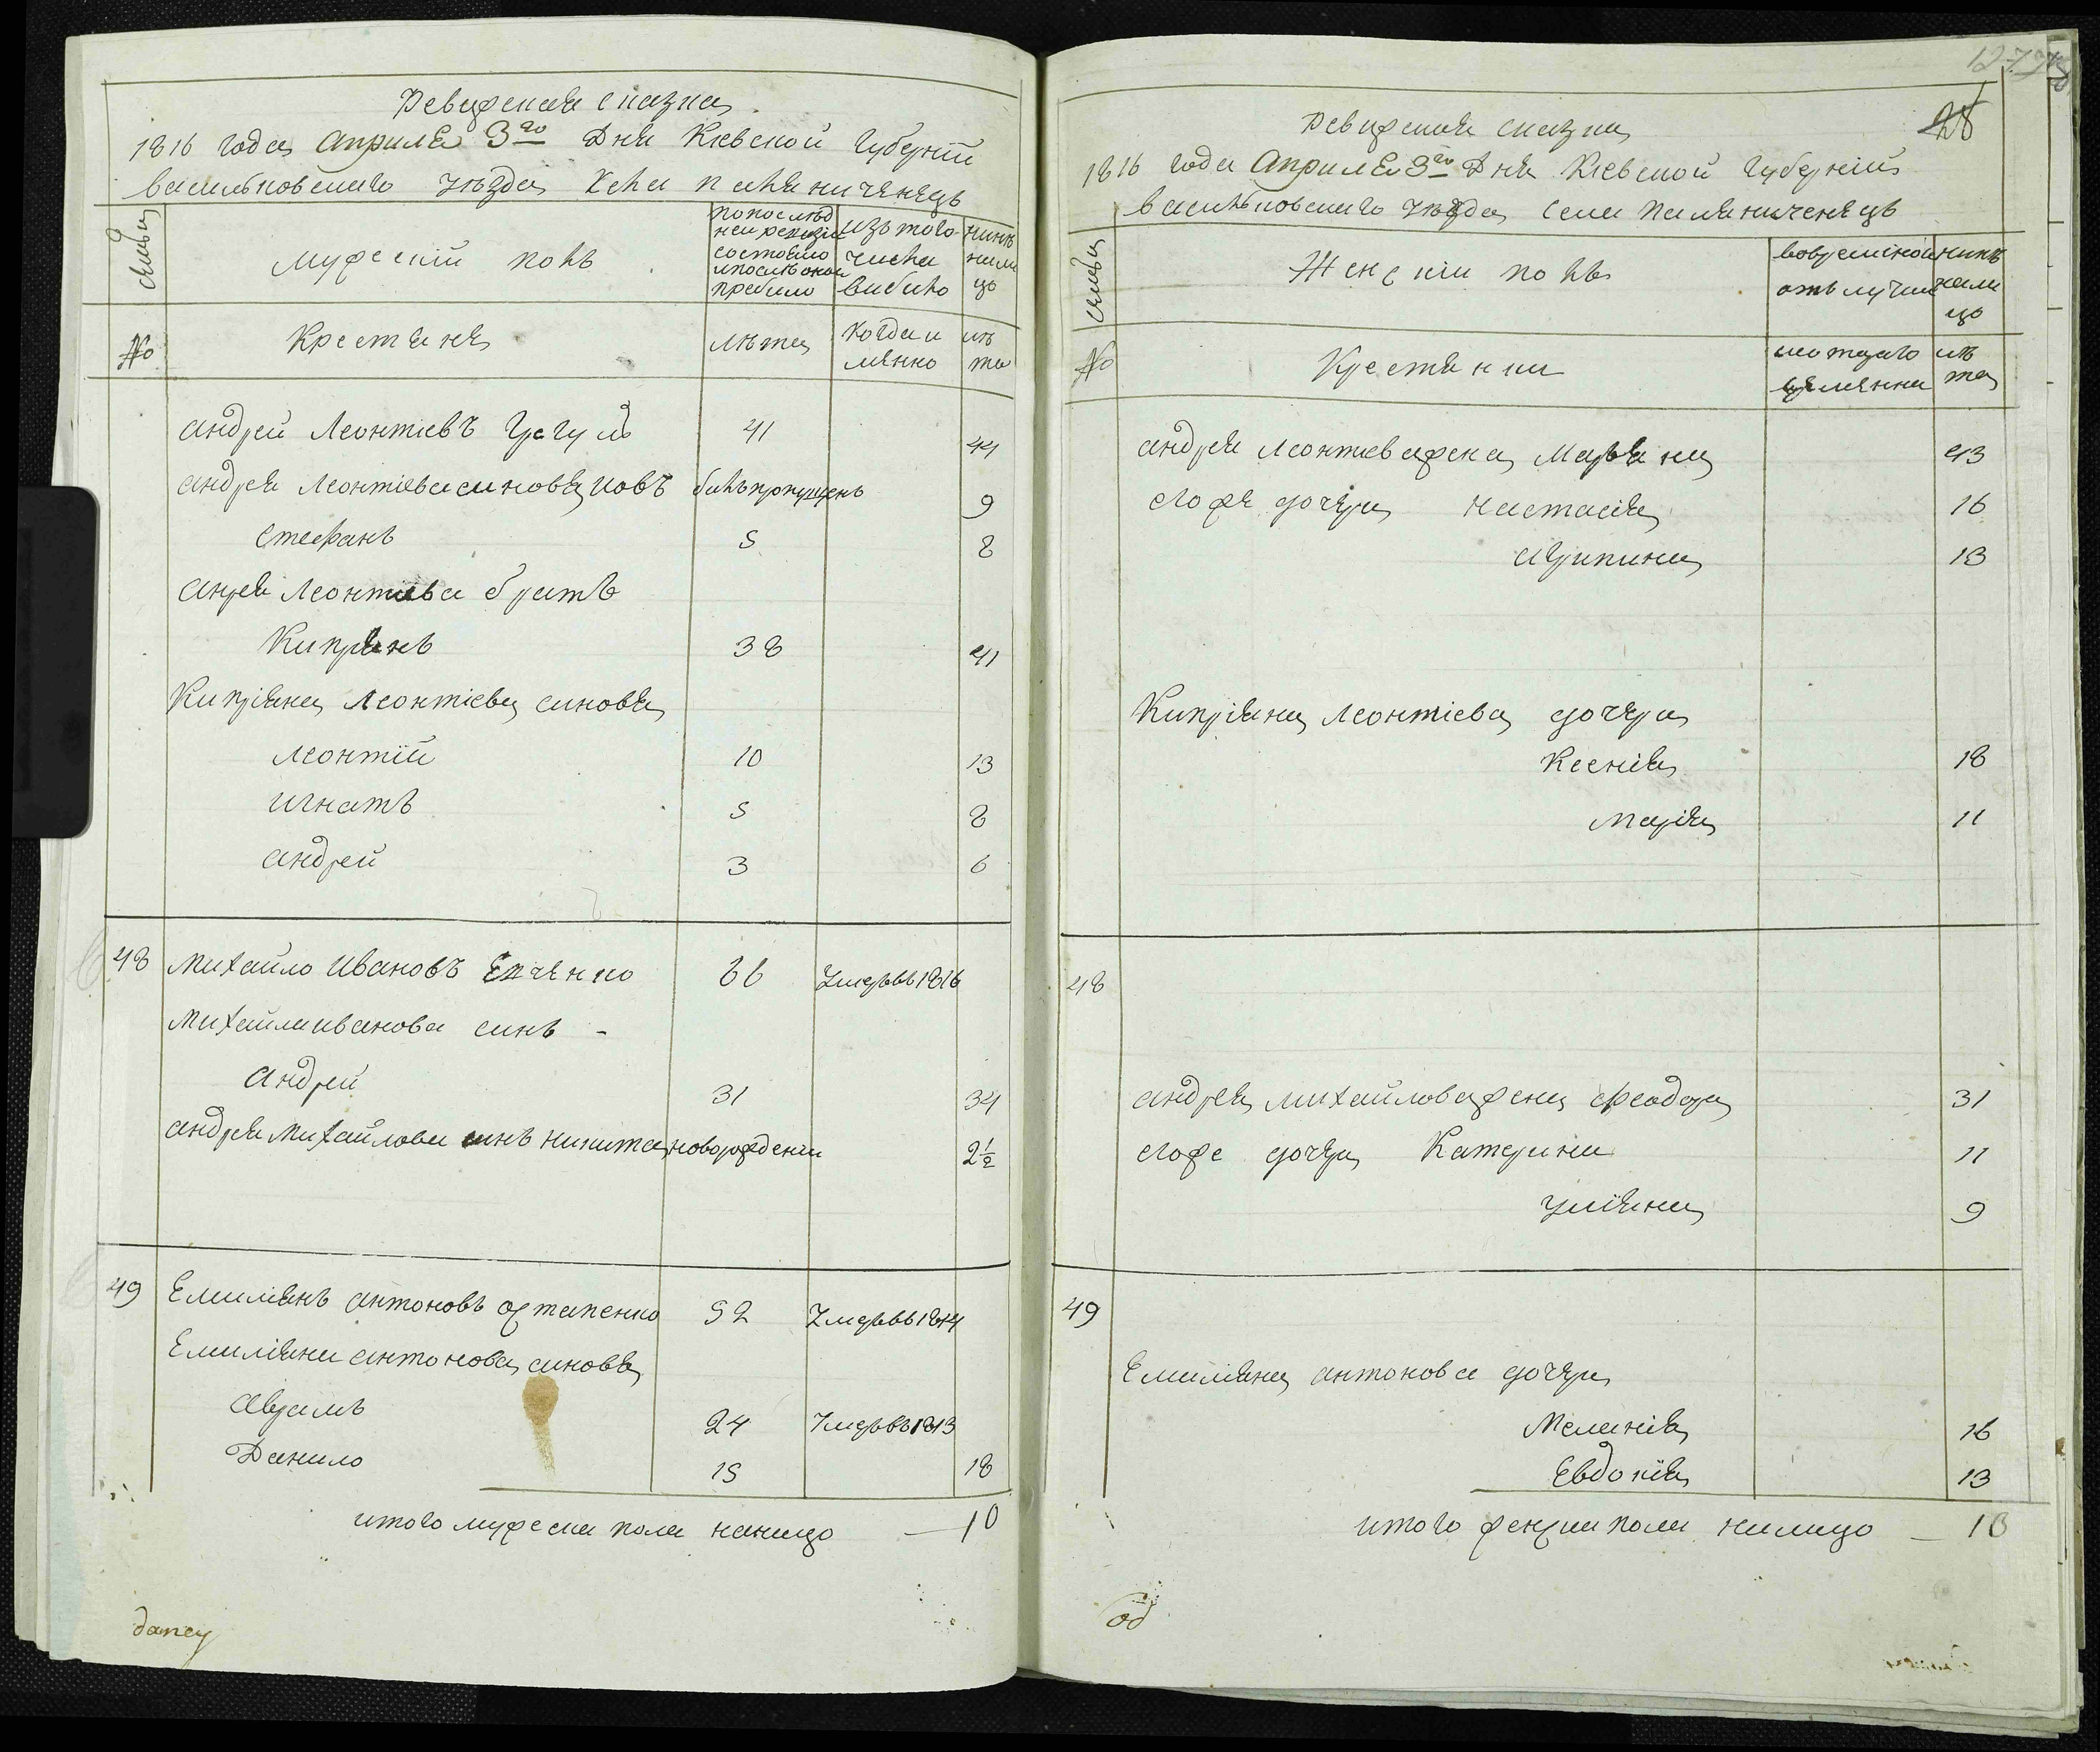 Ревизская сказка
1816 года Априля 3го Дня Киевской Губернiи
васильковского уезда Села палянichенецъ
семьи
мужескiй полъ
по послѣд
ней ревизiи
состояло
и после оной
прибило
изъ того
числа
вибило
нинѣ
нали
цо
№
Крестяне
лѣта
когда и
мянно
лѣ
та
андрей Леонтiевъ 41 44
андрея Леонтiева синовя Иовъ билъ пропущенъ 9
Стефанъ 5 8
анрея Леонтиева братъ
Кипрянъ 38 41
Кипрiяна Леонтiева синовя
Леонтiй 10 13
игнатъ 5 8
андрей 3 6
48 Михайло Ивановъ 66 Умеръвъ1816
Михайла иванова синъ -
андрей 31 34
андрея Михайлова синъ никита новорожденiи 2 1/2
49 Емилiянъ антоновъ остапенко 52 Умеръвъ1814
Емилiяна антонова синовя
аврамъ 24 Умеръвъ1813
Данило 15 18
итого мужеска пола налицо — 10
данеу
127
28
Ревизская сказка
1816 года Априля 3го Дня Киевской Губернiи
васильковского уезда Села паляниченецъ
семьи
Женскiи полъ
вовременой
отълучки
нинѣ
нали
цо
№
Крестянки
лѣ
та
андрея Леонтиева жена Маряна 43
его же дочери настасiя 16
агрипина 13
Кипрiяна Леонтiева дочери
Ксенiя 18
марiя 11
48
андрея михайлова жена феодора 31
его же дочери Катерина 11
улiяна 9
49
Емилiяна антонова дочери
Меланiя 16
Евдокiя 13
итого женска пола налицо — 10
од